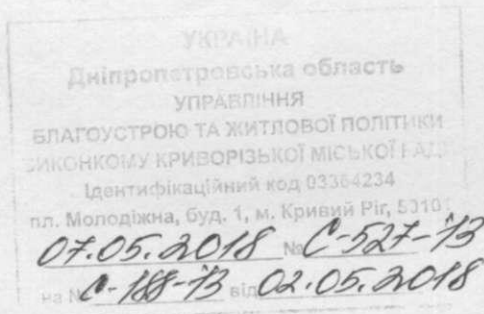 УКРАЇНА
Дніпропетровська область
УПРАВЛІННЯ
БЛАГОУСТРОЮ ТА ЖИТЛОВОЇ ПОЛІТИКИ
ВИКОНКОМУ КРИВОРІЗЬКОЇ МІСЬКОЇ РАДИ
Ідентифікаційний код 03364234
пл. Молодіжна, буд. 1, м. Кривий Ріг, 50101
07.05.2018 № С-527-13
на № С-188-13 від 02.05.2018